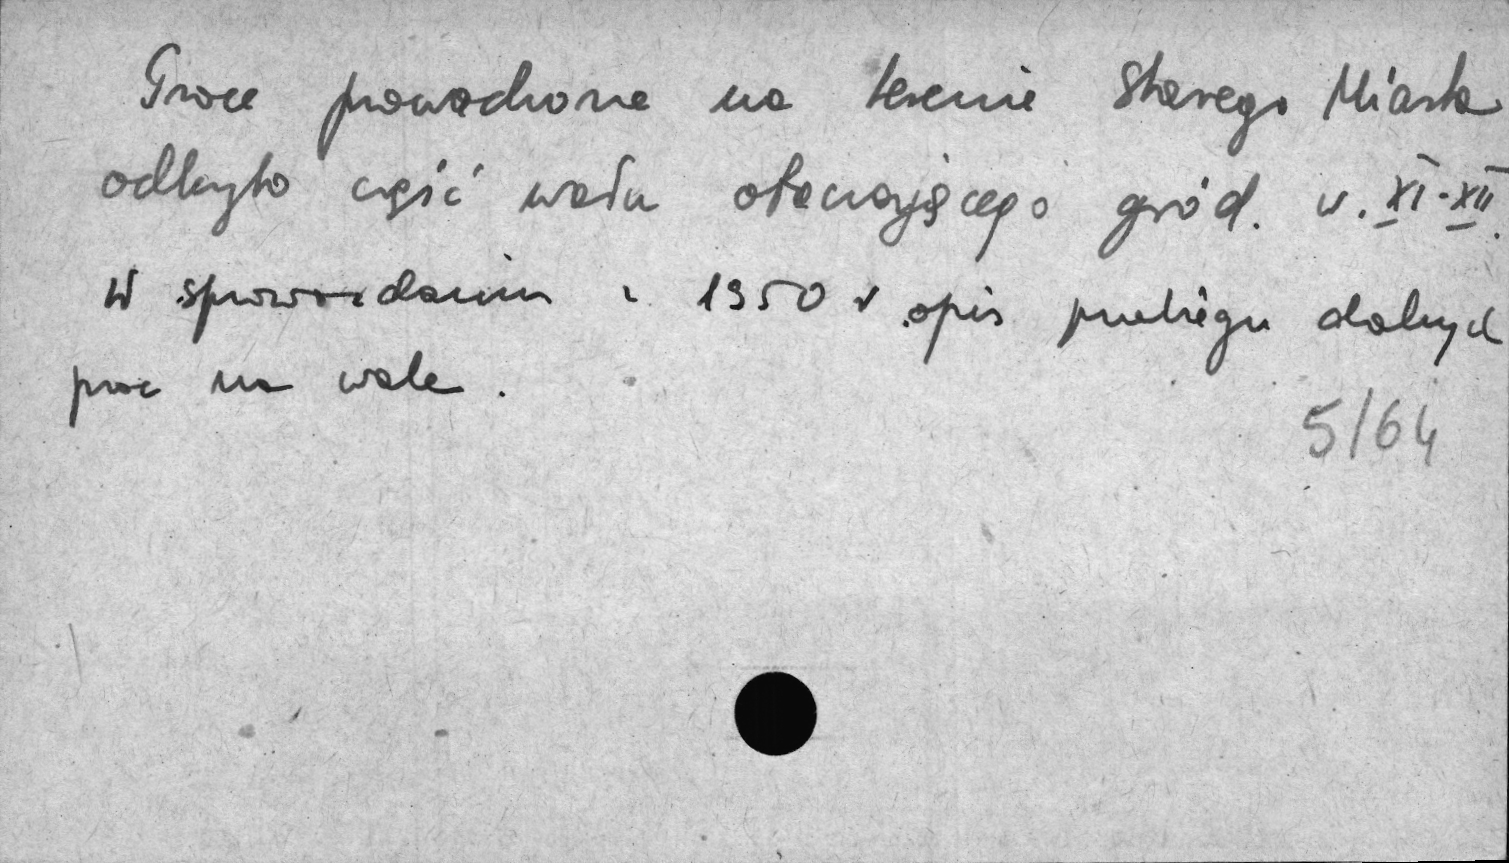 Prace prowadzone na terenie Starego Miasta
odkryto część wału otaczającego gród. w. XI-XII.
W sprawozdaniu z 1950 r. opis przebiegu dalszych
prac na wale.
5/64